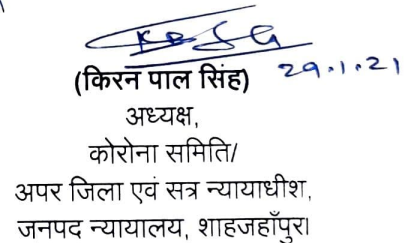 (किरन पाल सिंह) 29.1.21
अध्यक्ष,
कोरोना समिति/
अपर जिला एवं सत्र न्यायाधीश,
जनपद न्यायालय, शाहजहाँपुर।